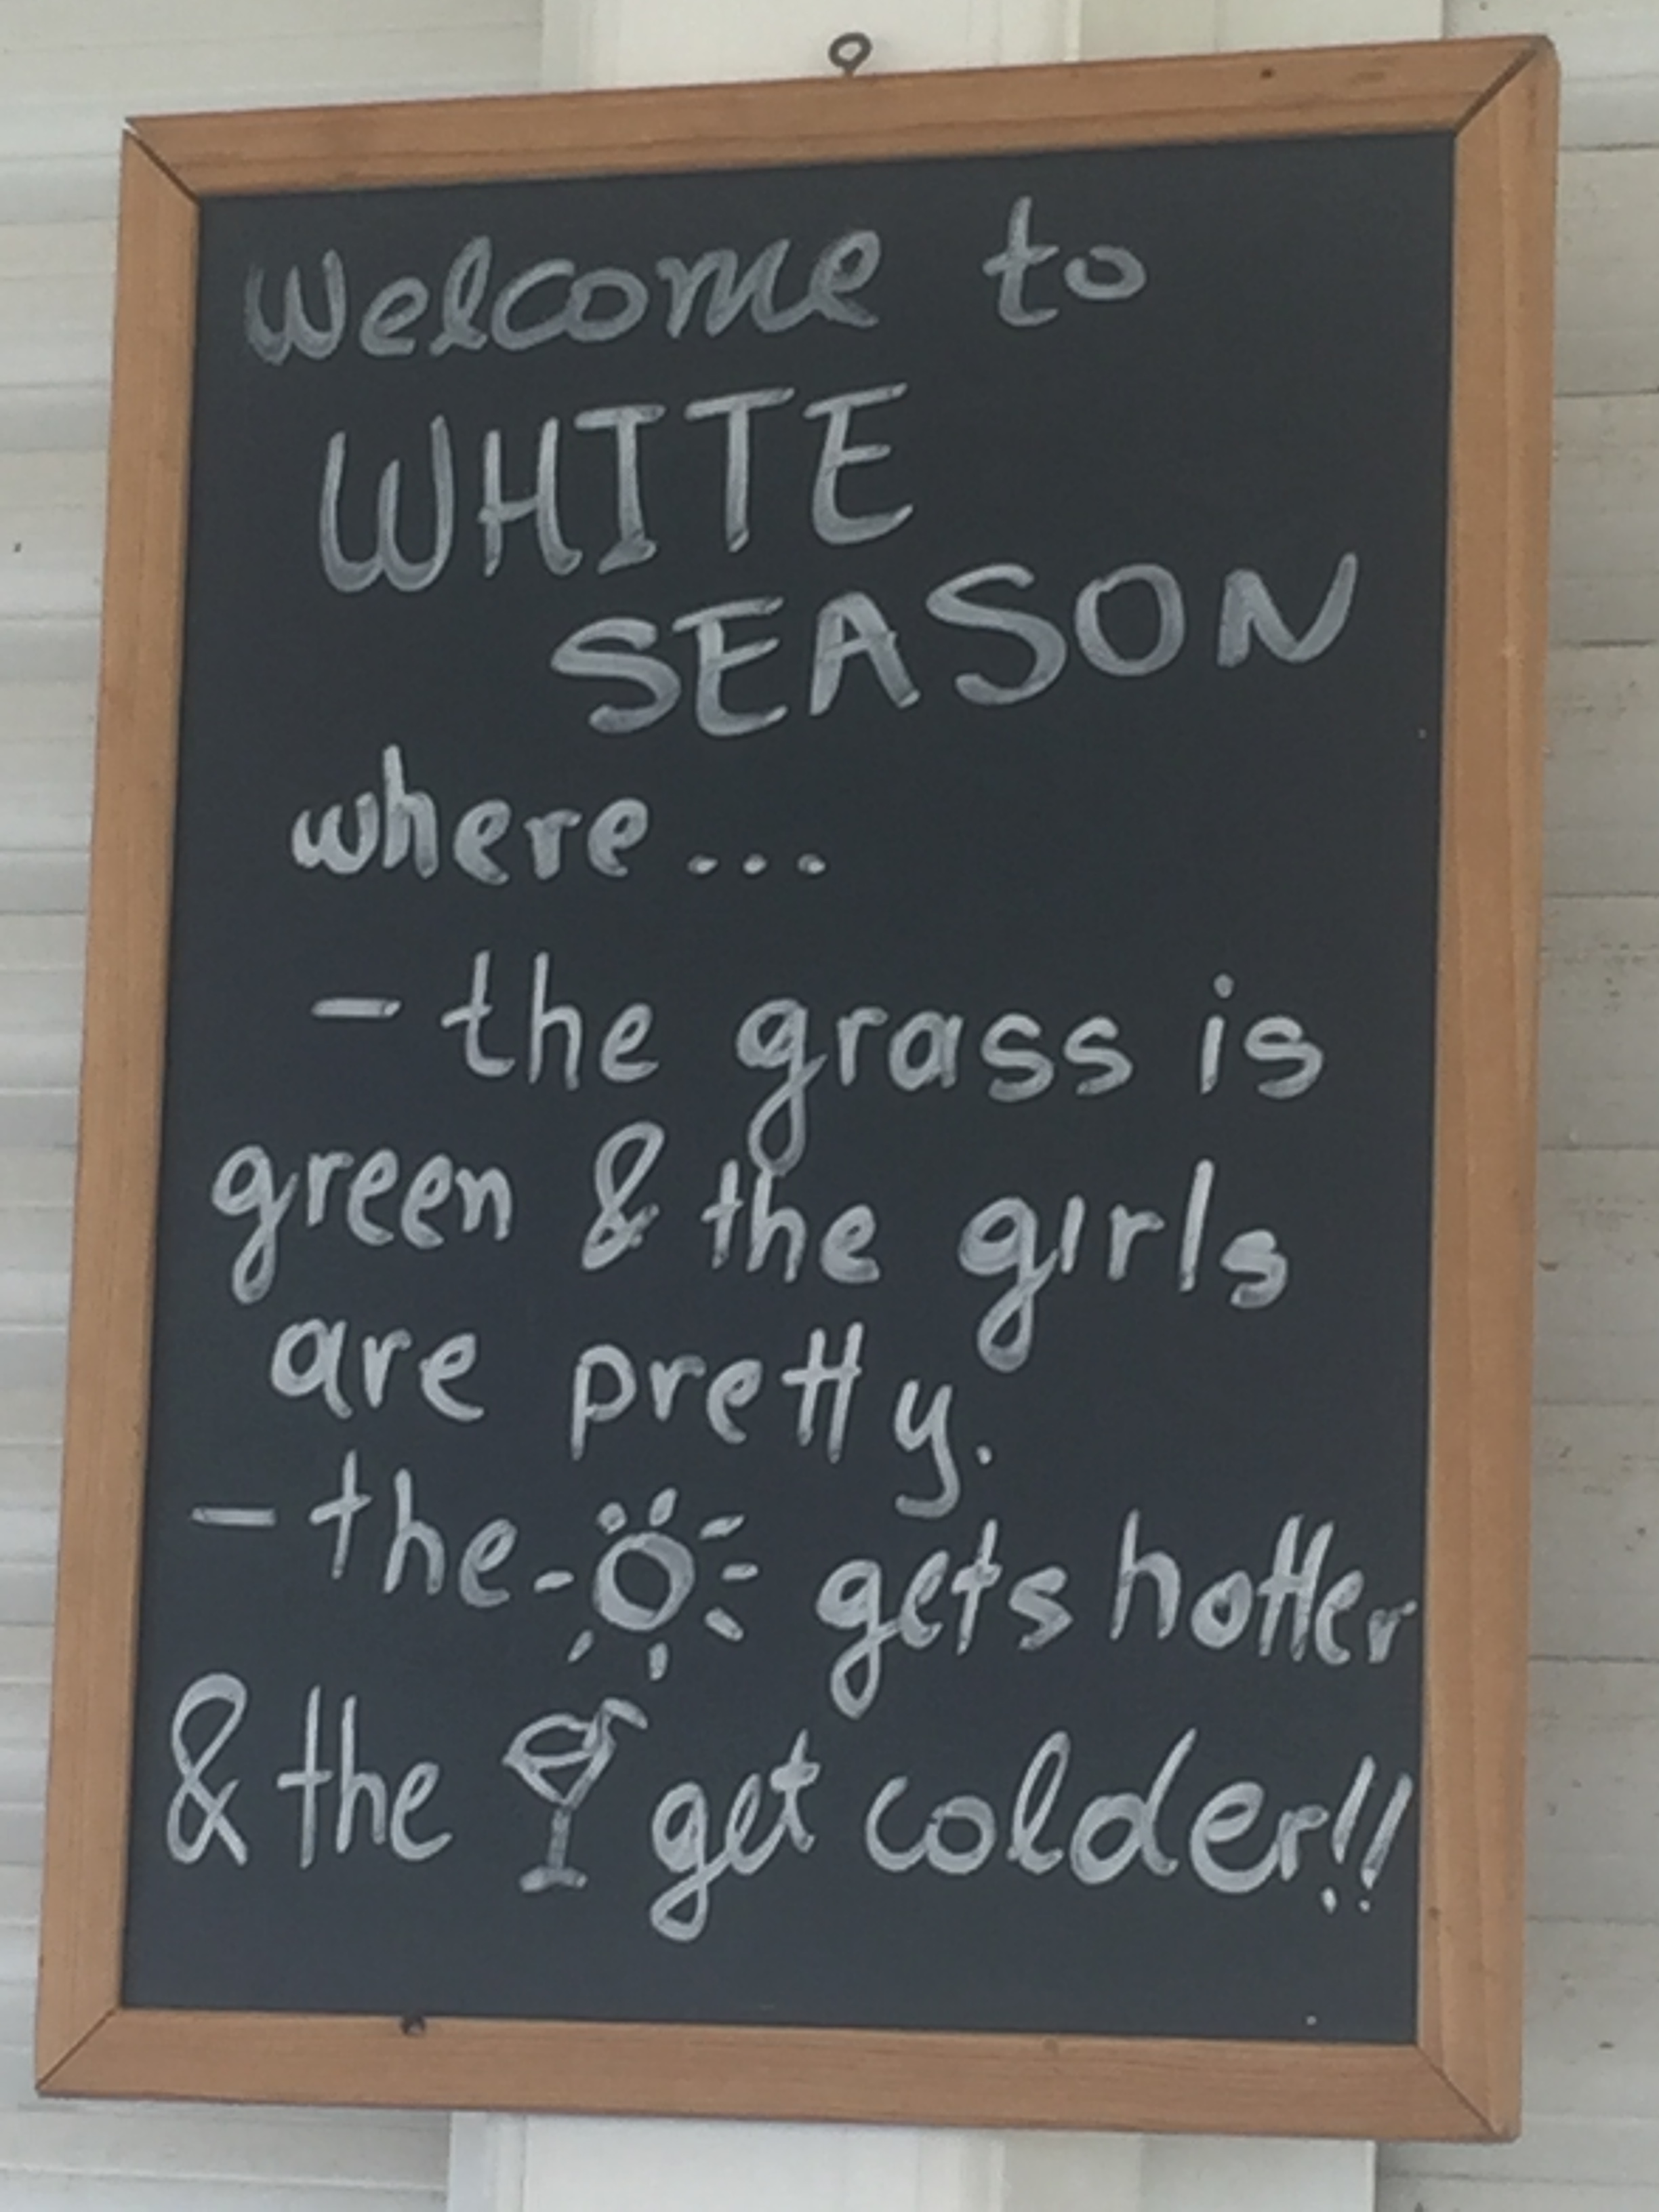 Welcome to
WHITE
SEASON
where...
- the grass is
green & the girls
are pretty.
- the gets hotter
& the get colder!!